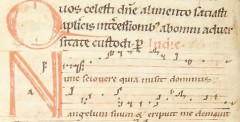 Quos celesti dñe alimento satiasti
aplicis intcessionib; ab omni adver
sitate custodi. P In die
Nunc scio vere quia misit dominus
angelum suum & eripuit me demanu